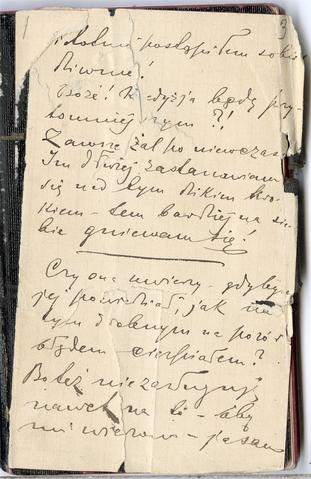 3
istotnie postąpiłem sobie
dziwnie!
Boże! Kiedyż ja będę przy-
tomniejszym?!
Zawsze żal po niewczas
Im dłużej zastanawiam
się nad tym dzikim kro-
kiem – tem bardziej na sie-
bie gniewam się!
Czy ona uwierzy – gdyby
jej powiedział, jak nad
tym drobnym na pozór
błędem – cierpiałem?
Bo też nie zasługuję
nawet na to – aby
mi wierzono – ja sam